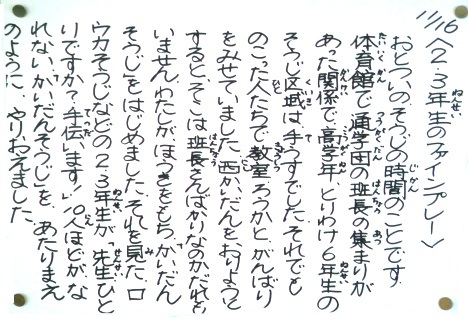 11/16
〈2・3年生のファインプレー〉
おとついの、そうじの時間のことです。
体育館で、通学団の班長の集まりが
あった関係で、高学年、とりわけ6年生の
そうじ区域は手うすでした。それでも
のこった人たちで、教室、ろうかと、がんばり
をみせていました。西かいだんをおりようと
すると、そこは班長さんばかりなのかだれも
いません。わたしがほうきをもち、かいだん
そうじをはじめました。それを見た、ロ
ウカそうじなどの2・3年生が、「先生ひと
りですか?手伝います!」10人ほどがな
れない、“かいだんそうじ”を、あたりまえ
のように、やりおえました。